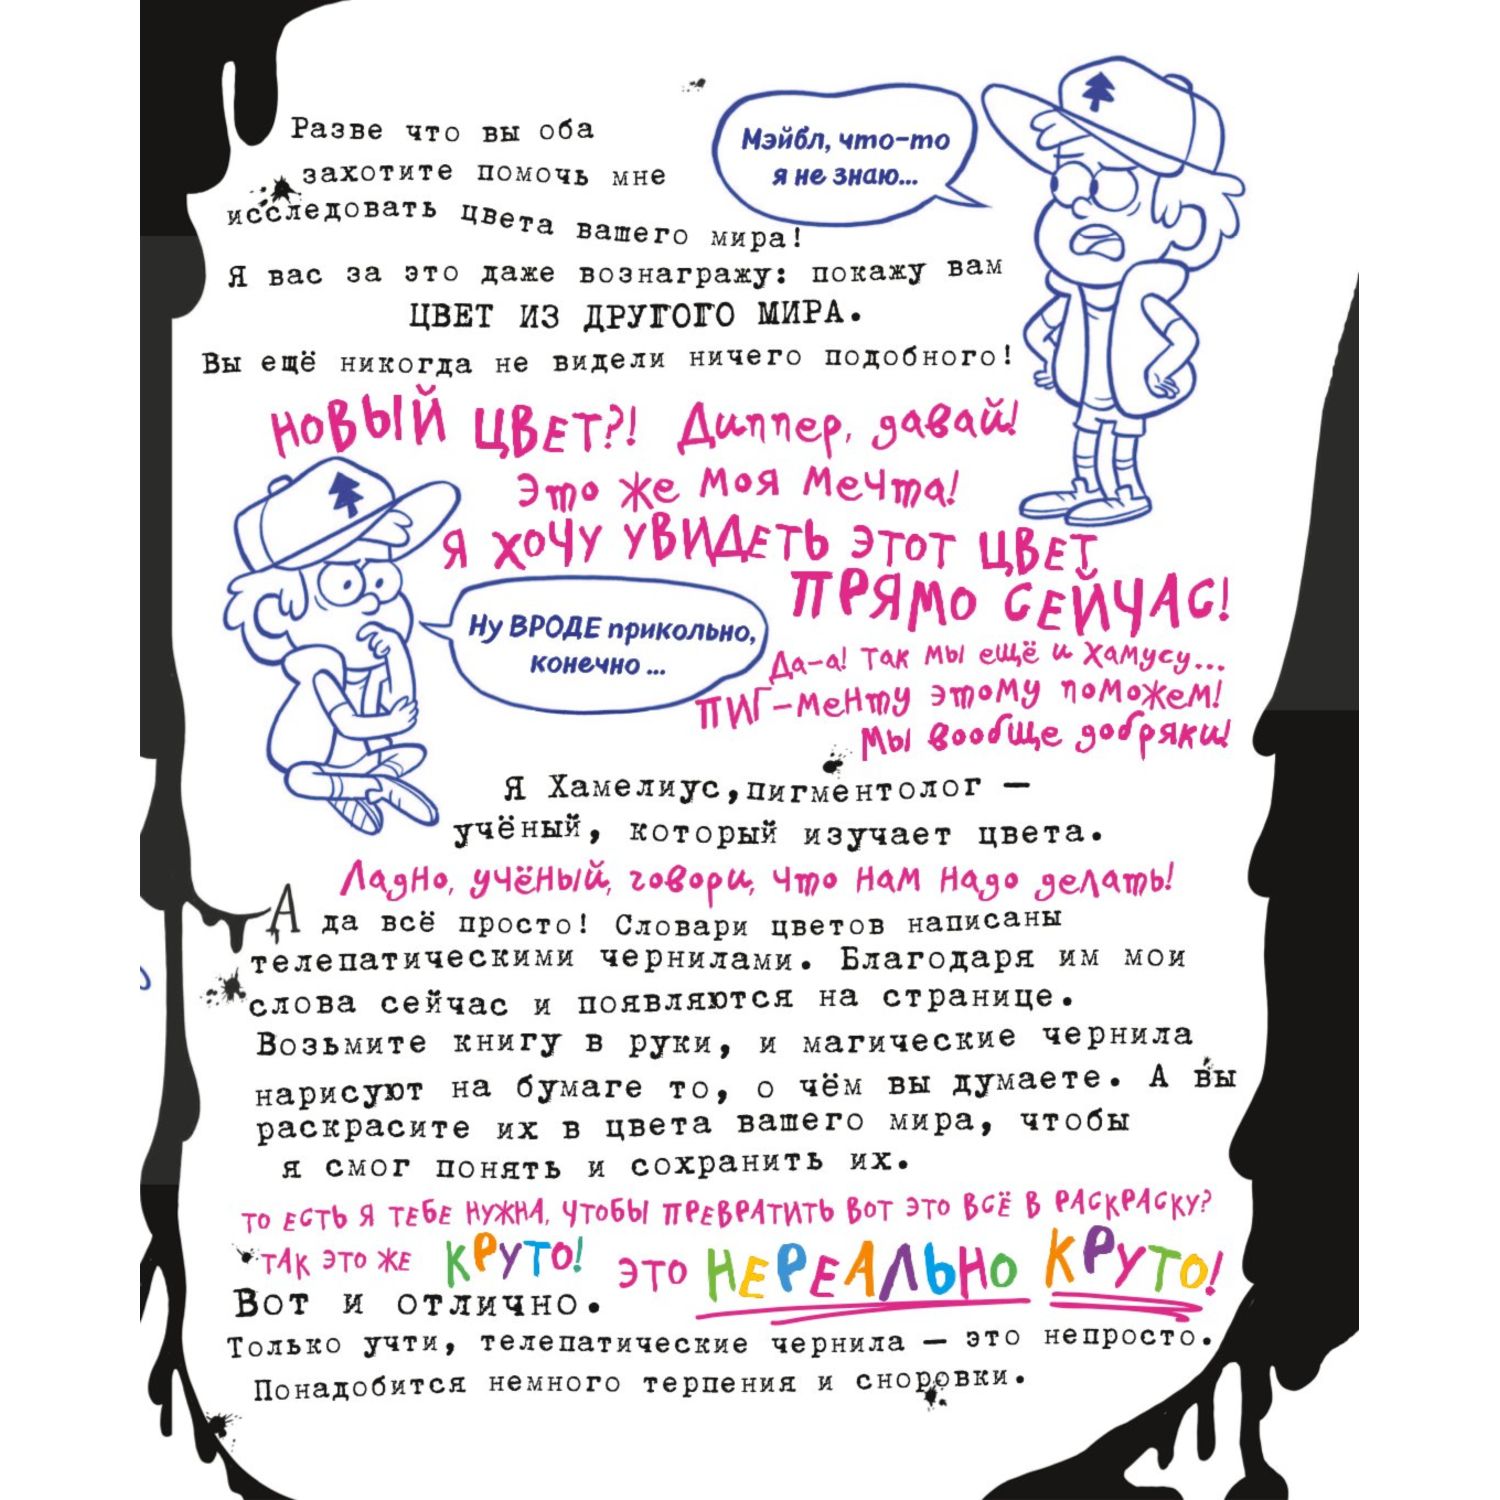 Разве что вы оба
захотите помочь мне
исследовать цвета вашего мира!
Мэйбл, что-то
я не знаю...
Я вас за это даже вознагражу: покажу вам
ЦВЕТ ИЗ ДРУГОГО МИРА.
Вы ещё никогда не видели ничего подобного!
НОВЫЙ ЦВЕТ?! Диппер, давай!
Это же моя мечта!
Я ХОЧУ УВИДЕТЬ ЭТОТ ЦВЕТ
ПРЯМО СЕЙЧАС!
Ну ВРОДЕ прикольно,
конечно ...
Да-а! Так мы ещё и Хамусу...
ПИГ-менту этому поможем!
Мы вообще добряки!
Я Хамелиус, пигментолог —
учёный, который изучает цвета.
Ладно, учёный, говори, что нам надо делать!
А да всё просто! Словари цветов написаны
телепатическими чернилами. Благодаря им мои
слова сейчас и появляются на странице.
Возьмите книгу в руки, и магические чернила
нарисуют на бумаге то, о чём вы думаете. А вы
раскрасите их в цвета вашего мира, чтобы
я смог понять и сохранить их.
ТО ЕСТЬ Я ТЕБЕ НУЖНА, ЧТОБЫ ПРЕВРАТИТЬ ВОТ ЭТО ВСЁ В РАСКРАСКУ?
ТАК ЭТО ЖЕ КРУТО! ЭТО НЕРЕАЛЬНО КРУТО!
Вот и отлично.
Только учти, телепатические чернила — это непросто.
Понадобится немного терпения и сноровки.